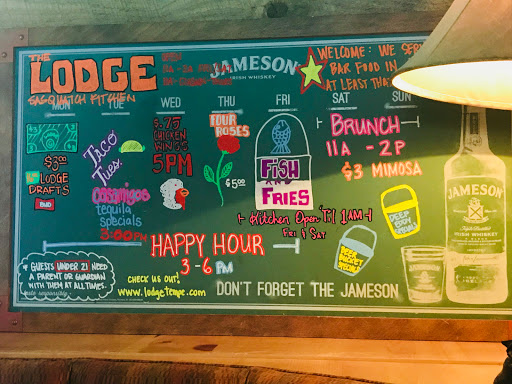 THE
LODGE
SASQUATCH KITCHEN
OPEN
JAMESON
IRISH WHISKEY
WELCOME: WE SERVE
BAR FOOD IN
AT LEAST THAT
MON TUE WED THU FRI SAT SUN
$3.00
LODGE
DRAFTS
Tico
Tues.
Casamigos
tequila
specials
3:00PM
$.75
CHICKEN
WINGS
5PM
FOUR
ROSES
$5.00
FISH
AND
FRIES
Kitchen Open 'Til 1AM
Fri & Sat
BRUNCH
11A - 2P
$3 MIMOSA
DEEP
EDDY
SPECIALS
BEER
BUCKET
SPECIALS
HAPPY HOUR
3-6 PM
GUESTS UNDER 21 NEED
A PARENT OR GUARDIAN
WITH THEM AT ALL TIMES.
CHECK US OUT!
www.lodgeTempe.com
DON'T FORGET THE JAMESON
JAMESON
IRISH WHISKEY
JAMESON